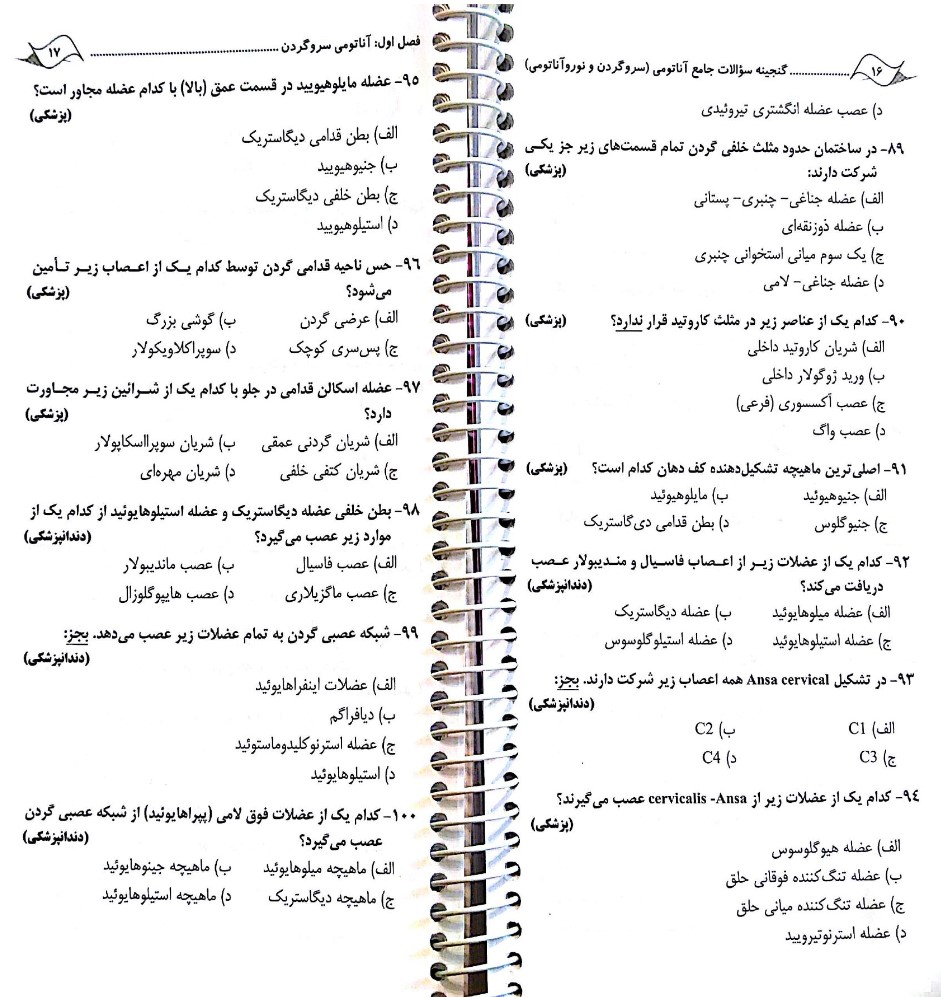 ۱۶
گنجینه سؤالات جامع آناتومی (سروگردن و نوروآناتومی)
د) عصب عضله انگشتری تیروئیدی
۸۹- در ساختمان حدود مثلث خلفی گردن تمام قسمت‌های زیر جز یکی
شرکت دارند: (پزشکی)
الف) عضله جناغی- چنبری- پستانی
ب) عضله ذوزنقه‌ای
ج) یک سوم میانی استخوانی چنبری
د) عضله جناغی- لامی
۹۰- کدام یک از عناصر زیر در مثلث کاروتید قرار ندارد؟ (پزشکی)
الف) شریان کاروتید داخلی
ب) ورید ژوگولار داخلی
ج) عصب آکسسوری (فرعی)
د) عصب واگ
۹۱- اصلی‌ترین ماهیچه تشکیل‌دهنده کف دهان کدام است؟ (پزشکی)
الف) جنیوهیوئید ب) مایلوهیوئید
ج) جنیوگلوس د) بطن قدامی دی‌گاستریک
۹۲- کدام یک از عضلات زیر از اعصاب فاسیال و مندیبولار عصب
دریافت می‌کند؟ (دندانپزشکی)
الف) عضله میلوهایوئید ب) عضله دیگاستریک
ج) عضله استیلوهایوئید د) عضله استیلوگلوسوس
۹۳- در تشکیل Ansa cervical همه اعصاب زیر شرکت دارند. بجز:
(دندانپزشکی)
الف) C1 ب) C2
ج) C3 د) C4
۹۴- کدام یک از عضلات زیر از cervicalis -Ansa عصب می‌گیرند؟
(پزشکی)
الف) عضله هیوگلوسوس
ب) عضله تنگ‌کننده فوقانی حلق
ج) عضله تنگ‌کننده میانی حلق
د) عضله استرنوتیرویید
فصل اول: آناتومی سروگردن
۱۷
۹۵- عضله مایلوهیویید در قسمت عمق (بالا) با کدام عضله مجاور است؟
(پزشکی)
الف) بطن قدامی دیگاستریک
ب) جنیوهیویید
ج) بطن خلفی دیگاستریک
د) استیلوهیویید
۹۶- حس ناحیه قدامی گردن توسط کدام یک از اعصاب زیر تأمین
می‌شود؟ (پزشکی)
الف) عرضی گردن ب) گوشی بزرگ
ج) پس‌سری کوچک د) سوپراکلاویکولار
۹۷- عضله اسکالن قدامی در جلو با کدام یک از شرائین زیر مجاورت
دارد؟ (پزشکی)
الف) شریان گردنی عمقی ب) شریان سوپرااسکاپولار
ج) شریان کتفی خلفی د) شریان مهره‌ای
۹۸- بطن خلفی عضله دیگاستریک و عضله استیلوهایوئید از کدام یک از
موارد زیر عصب می‌گیرد؟ (دندانپزشکی)
الف) عصب فاسیال ب) عصب ماندیبولار
ج) عصب ماگزیلاری د) عصب هایپوگلوزال
۹۹- شبکه عصبی گردن به تمام عضلات زیر عصب می‌دهد. بجز:
(دندانپزشکی)
الف) عضلات اینفراهایوئید
ب) دیافراگم
ج) عضله استرنوکلیدوماستوئید
د) استیلوهایوئید
۱۰۰- کدام یک از عضلات فوق لامی (پپراهایوئید) از شبکه عصبی گردن
عصب می‌گیرد؟ (دندانپزشکی)
الف) ماهیچه میلوهایوئید ب) ماهیچه جینوهایوئید
ج) ماهیچه دیگاستریک د) ماهیچه استیلوهایوئید